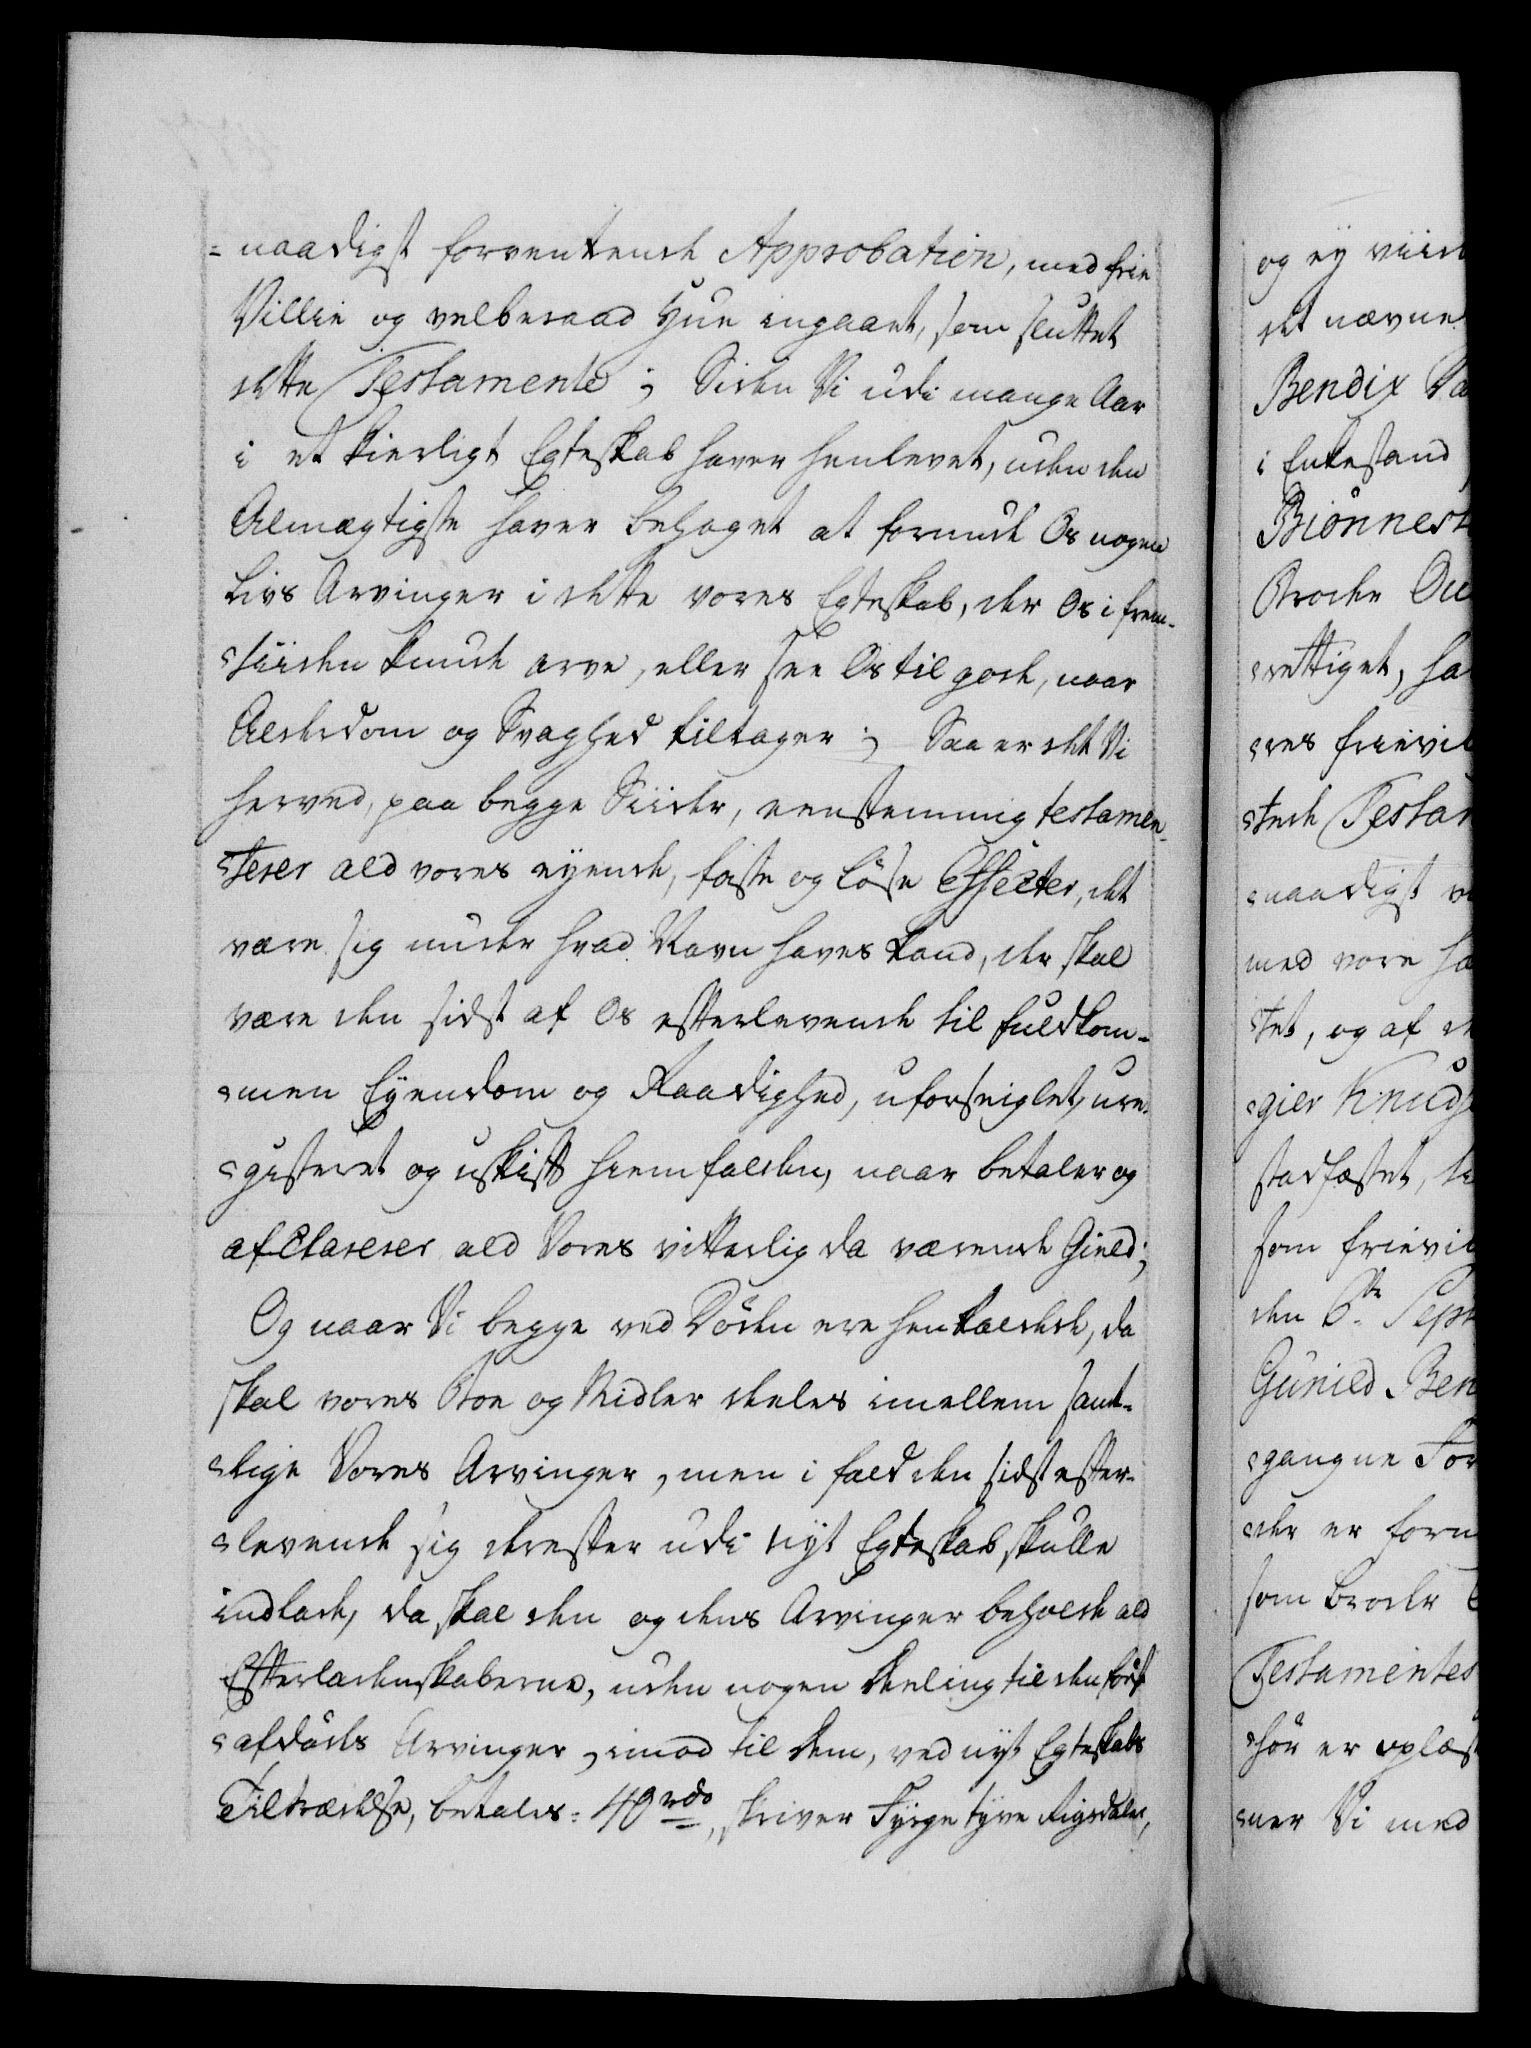 =naadigst forventende Approbation, med frie
Villie og velberaad Hue indgaaet, som sluttet
dette Testamente; Siden Vi udi mange Aar
i et kierligt Egteskab haver henlevet, uden den
Almægtigste haver behaget at forunde Os nogen
Livs Arvinger i dette vores Egteskab, der Os i frem-
=tiiden kunde arve, eller see Os til gode, naar
Alderdom og Svaghed tiltager; Saa er det Vi
herved, paa begge Siider, eenstemmig testamen-
=terer ald vores eyende, faste og løse Effecter, det
være sig under hvad Navn haves kand, der skal
være den sidst af Os efterlevende til fuldkom-
=men Eyendom og Raadighed, uforseiglet, ure-
=gisteret og uskift hiemfalden, naar betaler og
afclarerer ald Vores vitterlig da værende Gield;
Og naar Vi begge ved Døden ere henkaldede, da
skal vores Boe og Midler deeles imellem samt-
=lige Vores Arvinger, men i fald den sidst efter-
=levende sig derefter udi nyt Egteskab skulle
indlade, da skal den og dens Arvinger beholde ald
Efterladenskaberne, uden nogen Deeling til den først
=afdødes Arvinger, imod til dem, ved nyt Egteskabs
Tiltrædelse, betales: 40 rdr, skriver Fyrgetyve Rigsdaler,
og ey viid
det nævne
Bendix
i Enkestand
Biønnest
Broder
=rettiget, ha
=res frievil
=tede Testam
=naadigst
med vore ha
=tet, og af
=gier Knuds
stadfæstet,
som frievil
den 6te Sept
Gunild Ben
=gangne For
=der er forn
som Broder
Testamentes
=hør er oplæst
=ner Vi med